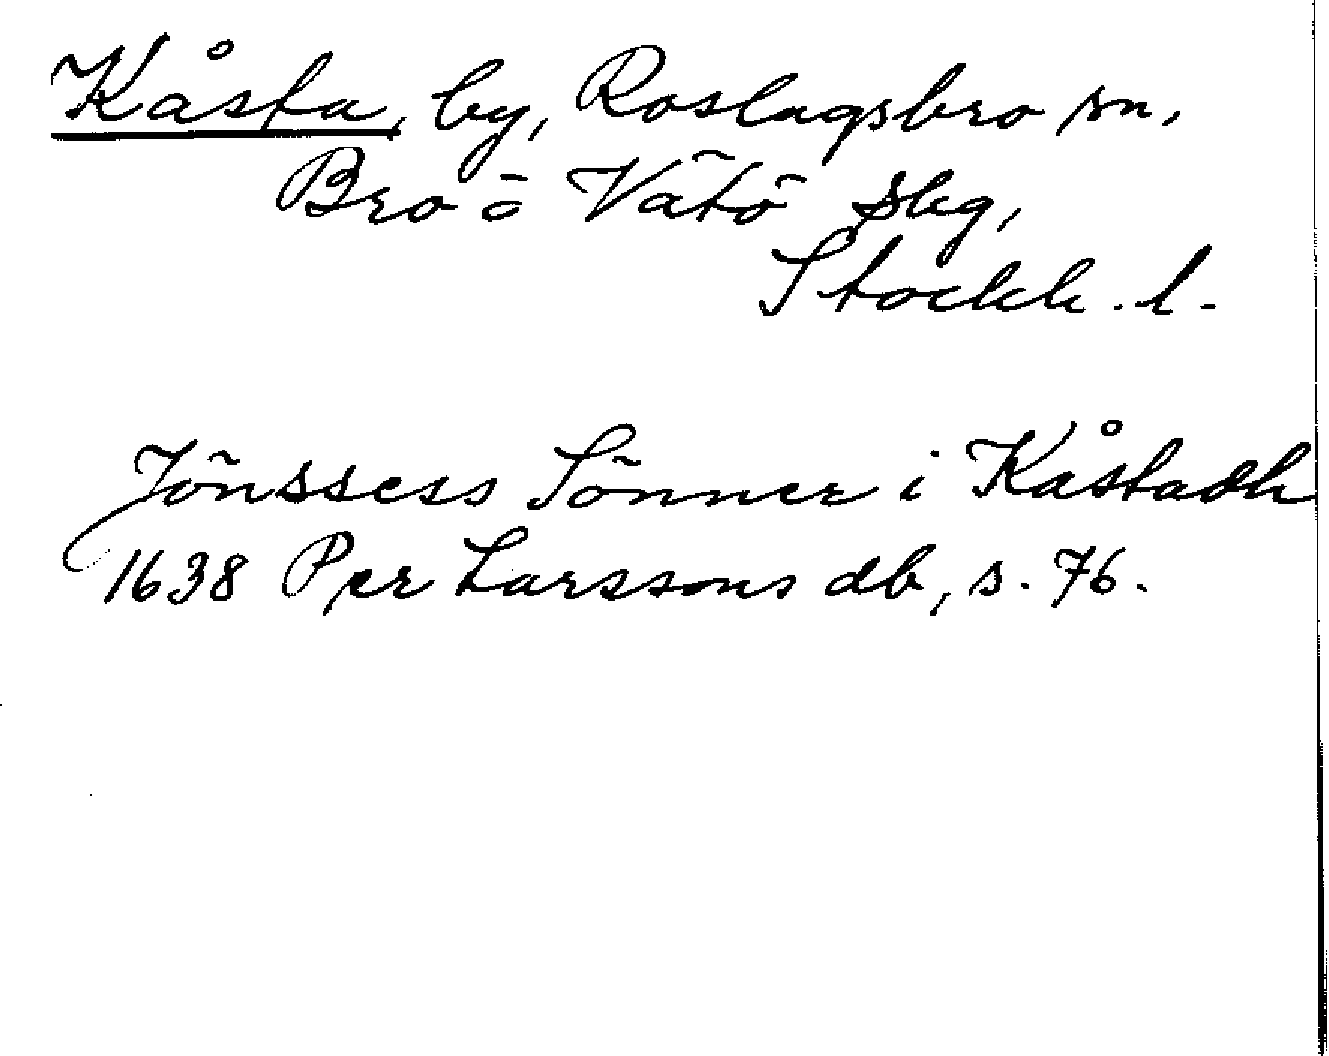 Kåsta, by, Roslagsbro sn,
Bro o Vätö skg,
Stockh. l.
Jönssess Sönner i Kåstadh
1638 Per Larssons db, s. 76.